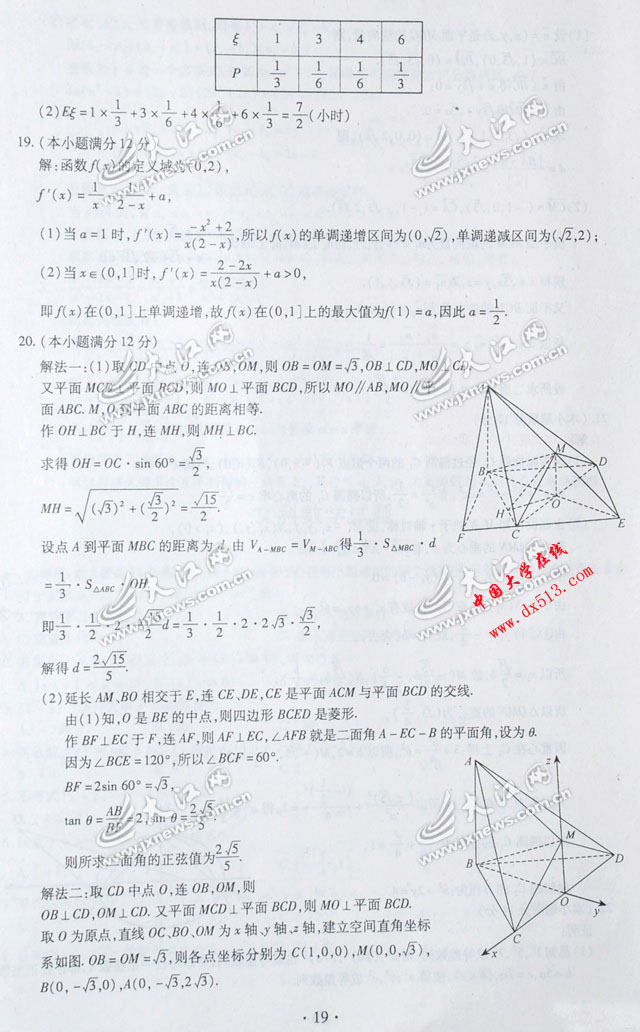 ξ 1 3 4 6
P 1/3 1/6 1/6 1/3
(2)Eξ=1×1/3+3×1/6+4×1/6+6×1/3=7/2(小时)
19.(本小题满分12分)
解:函数f(x)的定义域为(0,2),
f′(x)=1/x-1/(2-x)+a,
(1)当a=1时,f′(x)=(-x²+2)/(x(2-x)),所以f(x)的单调递增区间为(0,√2),单调递减区间为(√2,2);
(2)当x∈(0,1]时,f′(x)=(2-2x)/(x(2-x))+a>0,
即f(x)在(0,1]上单调递增,故f(x)在(0,1]上的最大值为f(1)=a,因此a=1/2.
20.(本小题满分12分)
解法一:(1)取CD中点O,连OB,OM,则OB=OM=√3,OB⊥CD,MO⊥CD.
又平面MCD⊥平面BCD,则MO⊥平面BCD,所以MO∥AB,MO∥平
面ABC.M,O到平面ABC的距离相等.
作OH⊥BC于H,连MH,则MH⊥BC.
求得OH=OC·sin60°=√3/2,
MH=√((√3)²+(√3/2)²)=√15/2.
设点A到平面MBC的距离为d,由V_{A-MBC}=V_{M-ABC}得1/3·S_{△MBC}·d
=1/3·S_{△ABC}·OH.
即1/3·1/2·2·√15/2 d=1/3·1/2·2·2√3·√3/2,
解得d=2√15/5
(2)延长AM、BO相交于E,连CE、DE,CE是平面ACM与平面BCD的交线.
由(1)知,O是BE的中点,则四边形BCED是菱形.
作BF⊥EC于F,连AF,则AF⊥EC,∠AFB就是二面角A-EC-B的平面角,设为θ.
因为∠BCE=120°,所以∠BCF=60°.
BF=2sin60°=√3,
tanθ=AB/BF=2,sinθ=2√5/5.
则所求二面角的正弦值为2√5/5.
解法二:取CD中点O,连OB,OM,则
OB⊥CD,OM⊥CD.又平面MCD⊥平面BCD,则MO⊥平面BCD.
取O为原点,直线OC、BO、OM为x轴、y轴、z轴,建立空间直角坐标
系如图.OB=OM=√3,则各点坐标分别为C(1,0,0),M(0,0,√3),
B(0,-√3,0),A(0,-√3,2√3).
M
D
B
O
H
F
C
E
z
A
M
B
D
O
y
C
x
中国大学在线
www.dx513.com
大江网
www.jxnews.com.cn
·19·